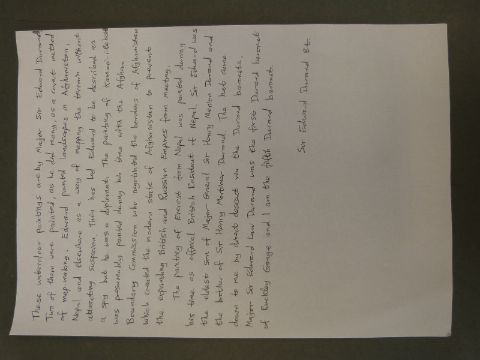 These watercolour paintings are by Major Sir Edward Durand
Two of them were painted, as he did many, as a covert method
of map making. Edward painted landscapes in Afghanistan,
Nepal and elsewhere as a way of mapping the terrain without
attracting suspicion. This has led Edward to be described as
a spy but he was a diplomat. The painting of
was presumably painted during his time with the Afghan
Boundary Commission who negotiated the borders of Afghanistan
which created the modern state of Afghanistan to prevent
the expanding British and Russian Empires from meeting.
The painting of Everest from Nepal was painted during
his time as official British Resident of Nepal. Sir Edward was
the eldest son of Major General Sir Henry Marion Durand and
the brother of Sir Henry Mortimer Durand. They have come
down to me by direct descent via the Durand baronets.
Major Sir Edward Law Durand was the first Durand baronet
of Ruckley Grange and I am the fifth Durand baronet.
Sir Edward Durand Bt.